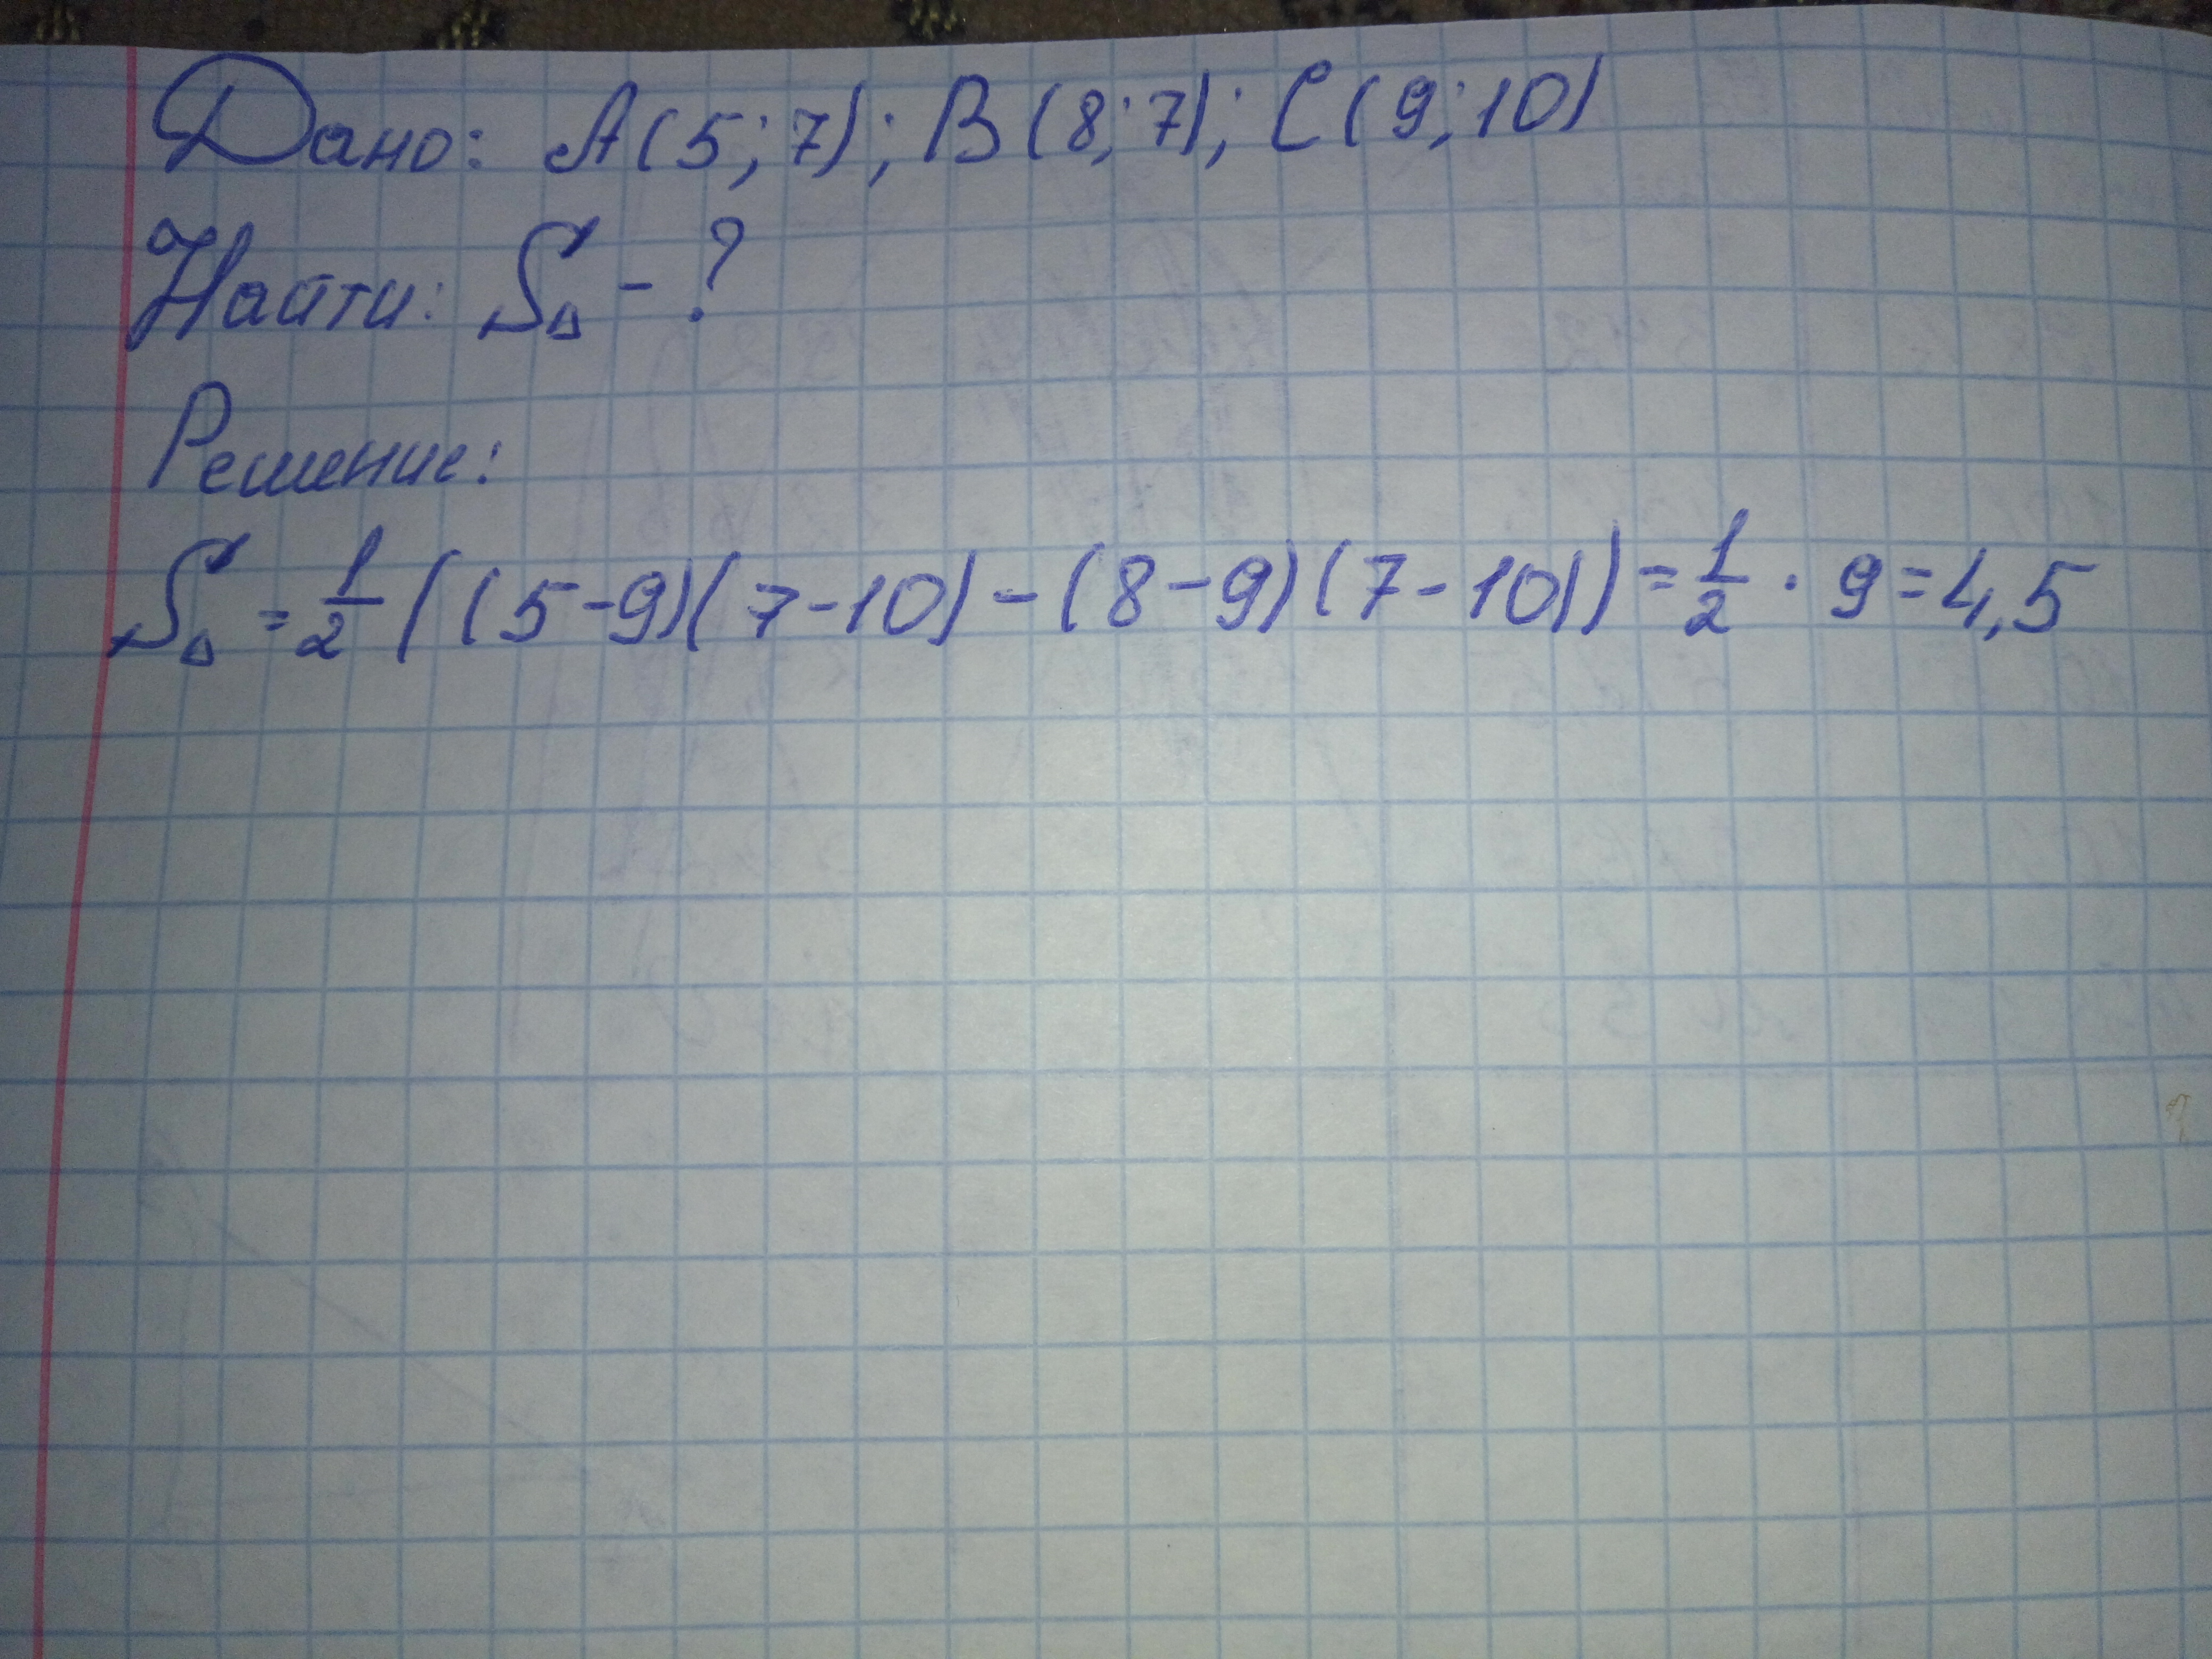 Дано: A(5;7); B(8;7); C(9;10)
Найти: S△ - ?
Решение:
S△ = 1/2 ((5-9)(7-10) - (8-9)(7-10)) = 1/2 · 9 = 4,5